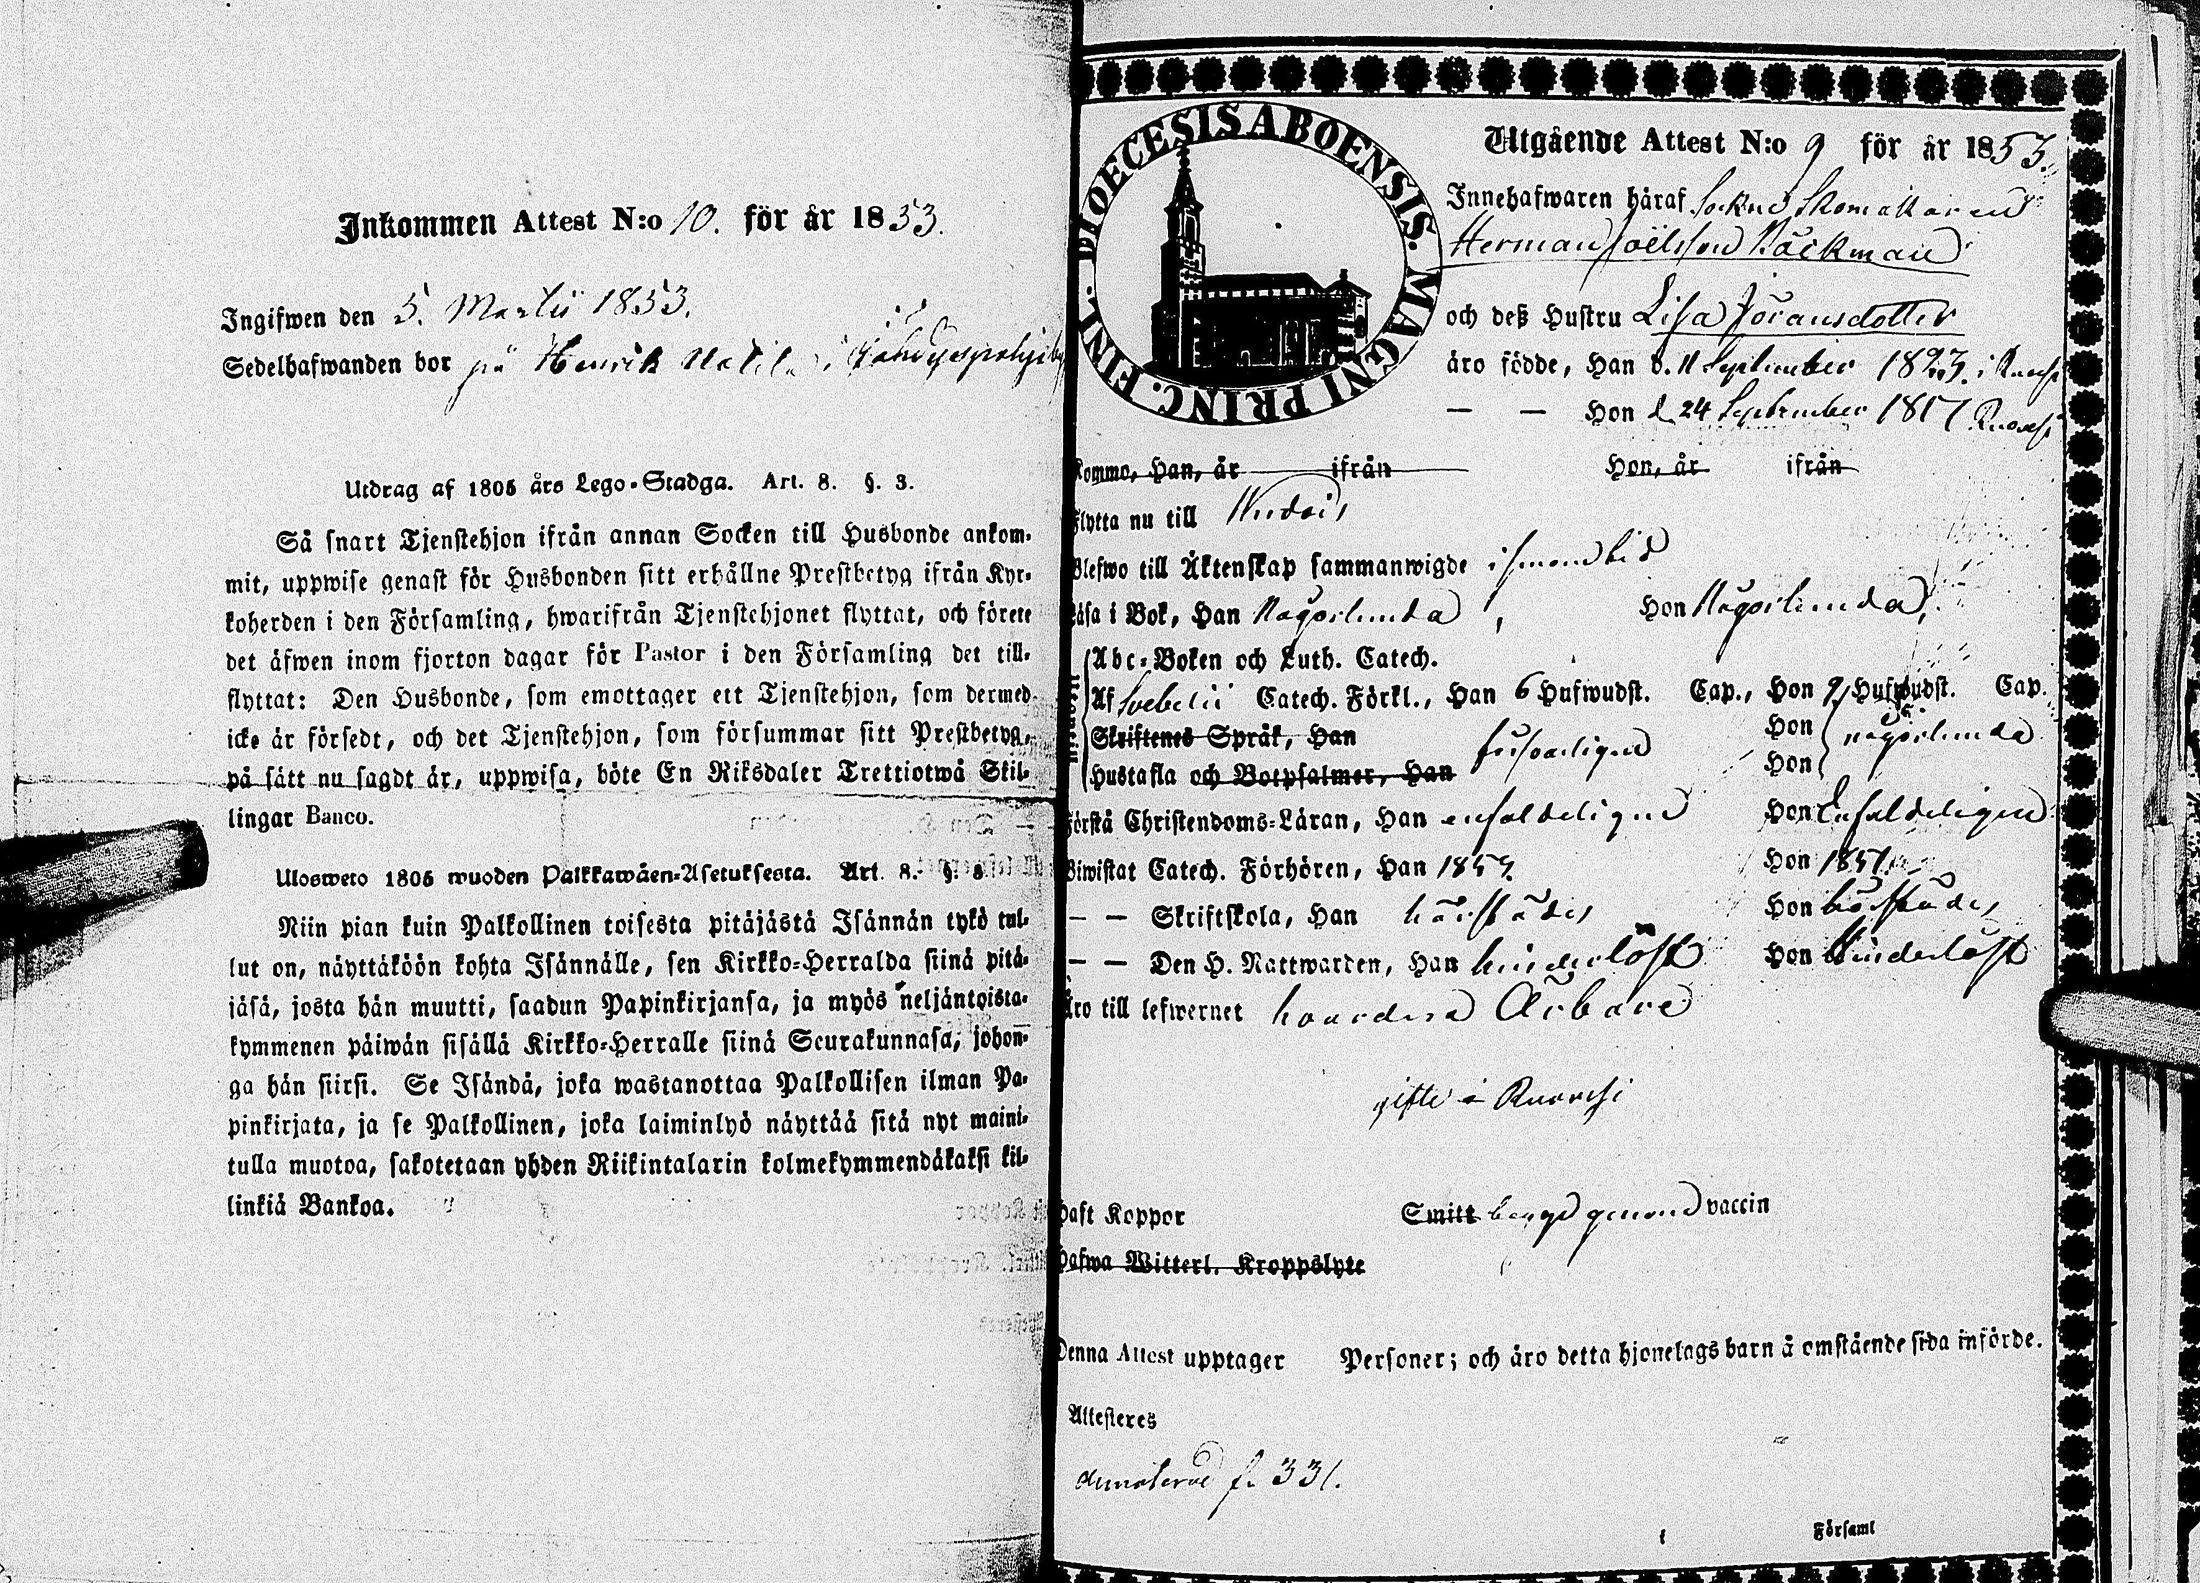 Inkommen Attest N:o 10. för år 1853.
Ingifwen den 5. Martii 1853.
Sedelhafwanden bor på Henrik
Utdrag af 1805 års Lego-Stadga. Art. 8. §. 3.
Så snart Tjenstehjon ifrån annan Socken till Husbonde ankom-
mit, uppwise genast för Husbonden sitt erhållne Prestbetyg ifrån Kyr-
koherden i den Församling, hwarifrån Tjenstehjonet flyttat, och förete
det äfwen inom fjorton dagar för Pastor i den Församling det till-
flyttat: Den Husbonde, som emottager ett Tjenstehjon, som dermed
icke är försedt, och det Tjenstehjon, som försummar sitt Prestbetyg,
på sätt nu sagdt är, uppwisa, böte En Riksdaler Trettiotwå Skil-
lingar Banco.
Ulosweto 1805 wuoden Palkkawäen-Asetuksesta. Art. 8. §. 3.
Niin pian kuin Palkollinen toisesta pitäjästä Isännän tykö tul-
lut on, näyttäköön kohta Isännälle, sen Kirkko-Herralda siinä pitä-
jäsä, josta hän muutti, saadun Papinkirjansa, ja myös neljäntoista-
kymmenen päiwän sisällä Kirkko-Herralle siinä Seurakunnasa, johon-
ga hän siirsi. Se Isändä, joka wastanottaa Palkollisen ilman Pa-
pinkirjata, ja se Palkollinen, joka laiminlyö näyttää sitä nyt maini-
tulla muotoa, sakotetaan yhden Riikintalarin kolmekymmendäkaksi kil-
linkiä Bankoa.
DIOECESIS ABOENSIS. MAGNI PRINC. FINL.
Utgående Attest N:o 9 för år 1853.
Innehafwaren häraf Sockne Skomakaren
Herman Joelsson Bäckman
och deß Hustru Lisa Jöransdotter
äro födde, Han d. 11 September 1823. i Ruovesi
— — Hon d. 24 September 1817 Ruovesi
Kommo, Han, år ifrån Hon, år ifrån
Flytta nu till
Blefwo till Äktenskap sammanwigde
Läsa i Bok, Han Någorlunda, Hon Någorlunda,
Abc-Boken och Luth. Catech.
Af Svebelii Catech. Förkl., Han 6 Hufwudst. Cap., Hon 9, Hufwudst. Cap.
Skriftenes Språk, Han Hon någorlunda
Hustafla och Botpsalmer, Han Hon
Förstå Christendoms-Läran, Han enfaldeligen Hon Enfaldeligen
Biwistat Catech. Förhören, Han Hon 1851
— — Skriftskola, Han börstädes Hon börstädes
— — Den H. Nattwarden, Han hinderlöst Hon Hinderlöst
Äro till lefwernet hwardera Ärbare
gifte i Ruovesi
Haft Koppor Smitt begge genom vaccin
Hafwa Witterl. Kroppslyte
Denna Attest upptager Personer; och äro detta hjonelags barn å omstående sida införde.
Attesteres
f. 331.
Församl